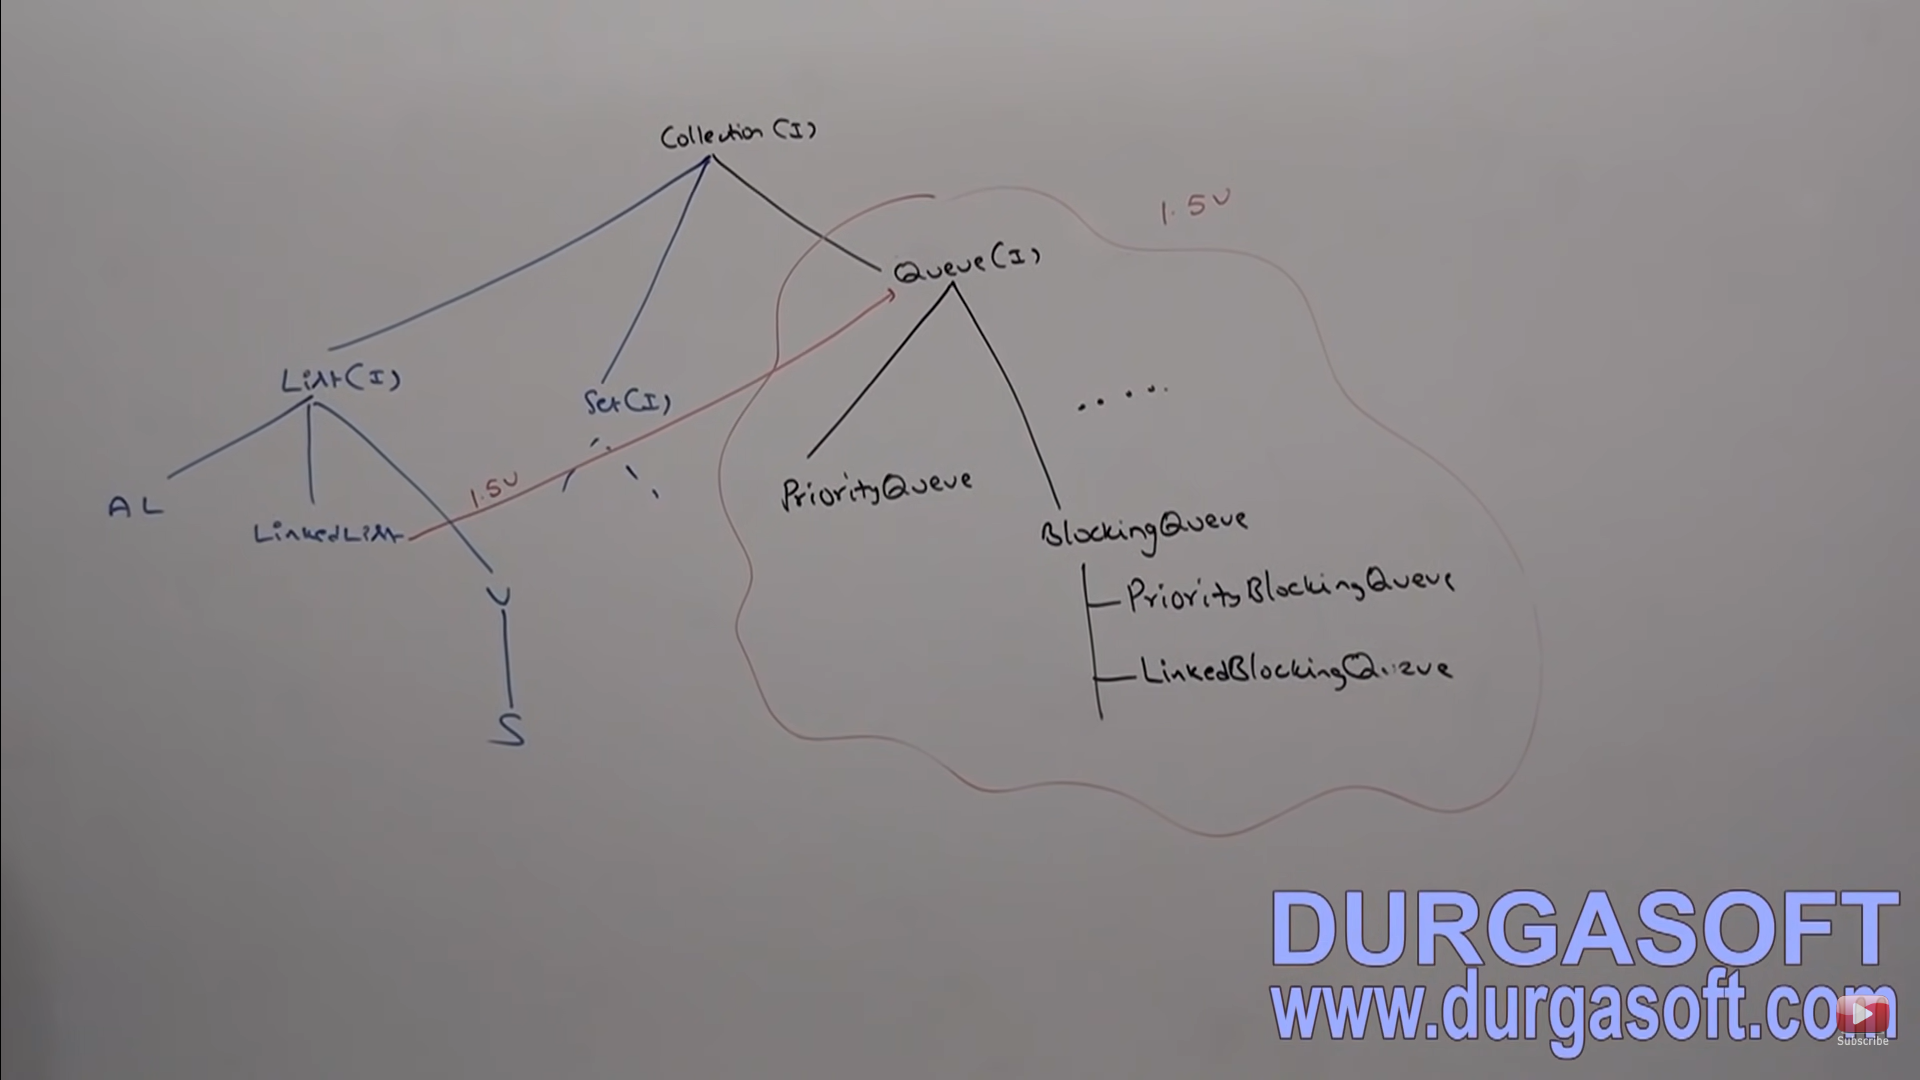 Collection (I)
1.5V
Queue(I)
List(I)
Set(I)
1.5V
PriorityQueue
AL
LinkedList
BlockingQueue
PriorityBlockingQueue
V
LinkedBlockingQueue
S
DURGASOFT
www.durgasoft.com
Subscribe